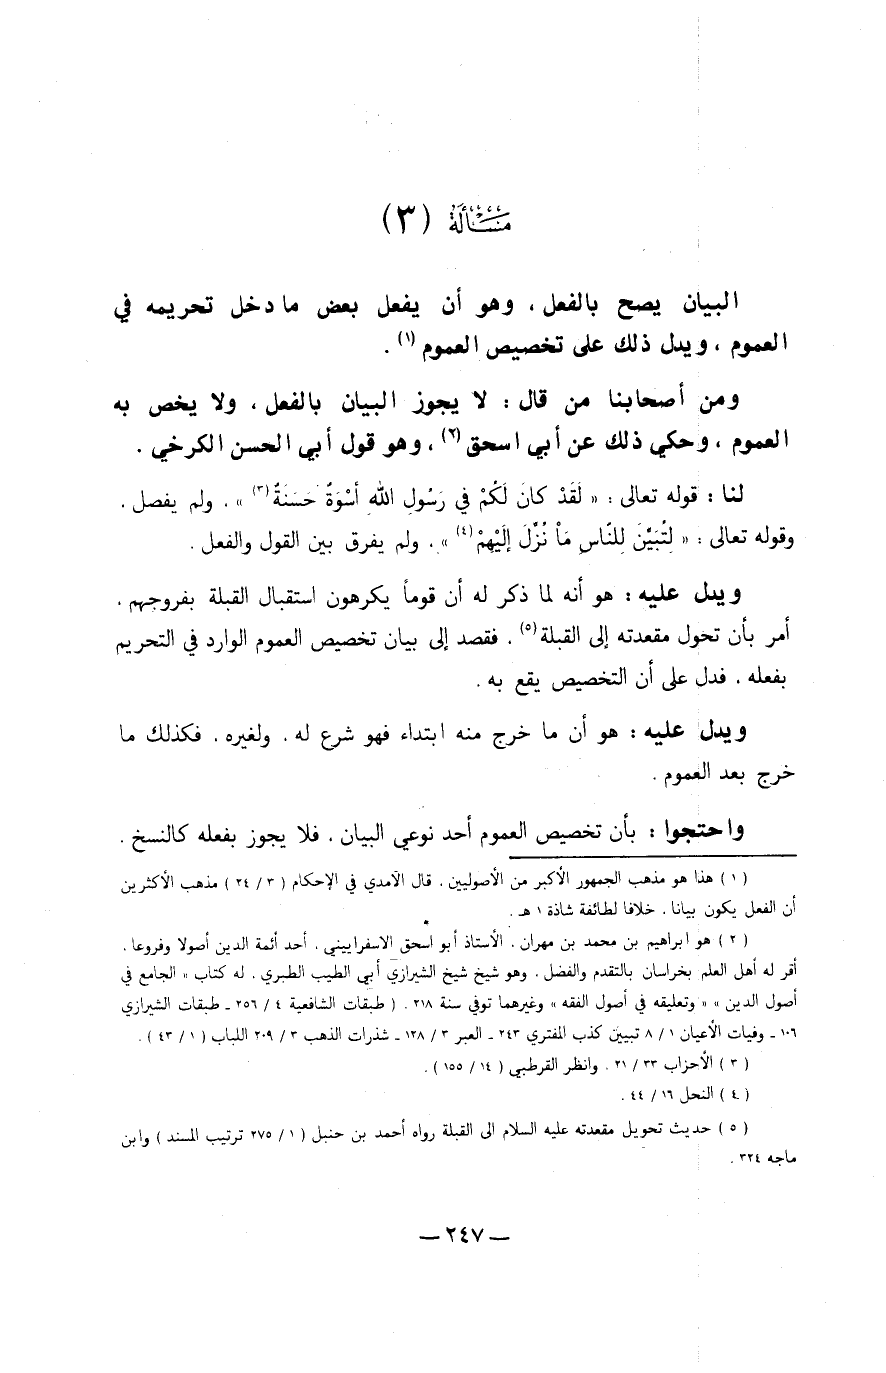 مَسْأَلَة (٣)
البيان يصح بالفعل ، وهو أن يفعل بعض ما دخل تحريمه في
العموم ، ويدل ذلك على تخصيص العموم (١) .
ومن أصحابنا من قال : لا يجوز البيان بالفعل ، ولا يخص به
العموم ، وحكي ذلك عن أبي اسحق (٢) ، وهو قول أبي الحسن الكرخي .
لنا : قوله تعالى : « لَقَدْ كانَ لَكُمْ في رَسُولِ اللهِ أسْوَةٌ حَسَنَةٌ (٣) » . ولم يفصل .
وقوله تعالى : « لِتُبَيِّنَ لِلنَّاسِ مَاْ نُزِّلَ إلَيْهِمْ (٤) » . ولم يفرق بين القول والفعل .
ويدل عليه : هو أنه لما ذكر له أن قوماً يكرهون استقبال القبلة بفروجهم .
أمر بأن تحول مقعدته إلى القبلة (٥) . فقصد إلى بيان تخصيص العموم الوارد في التحريم
بفعله . فدل على أن التخصيص يقع به .
ويدل عليه : هو أن ما خرج منه ابتداء فهو شرع له . ولغيره . فكذلك ما
خرج بعد العموم .
واحتجوا : بأن تخصيص العموم أحد نوعي البيان . فلا يجوز بفعله كالنسخ .
( ١ ) هذا هو مذهب الجمهور الأكبر من الأصوليين . قال الآمدي في الإحكام ( ٣ / ٢٤ ) مذهب الأكثرين
أن الفعل يكون بيانا . خلافا لطائفة شاذة ١ هـ .
( ٢ ) هو ابراهيم بن محمد بن مهران . الأستاذ أبو اسحق الاسفراييني . أحد أئمة الدين أصولا وفروعا .
أقر له أهل العلم بخراسان بالتقدم والفضل . وهو شيخ شيخ الشيرازي أبي الطيب الطبري . له كتاب « الجامع في
أصول الدين » « وتعليقه في أصول الفقه » وغيرهما توفي سنة ٢١٨ . ( طبقات الشافعية ٤ / ٢٥٦ ـ طبقات الشيرازي
١٠٦ ـ وفيات الأعيان ١ / ٨ تبيين كذب المفتري ٢٤٣ ـ العبر ٣ / ١٢٨ ـ شذرات الذهب ٣ / ٢٠٩ اللباب ( ١ / ٤٣ ) .
( ٣ ) الأحزاب ٣٣ / ٢١ . وانظر القرطبي ( ١٤ / ١٥٥ ) .
( ٤ ) النحل ١٦ / ٤٤ .
( ٥ ) حديث تحويل مقعدته عليه السلام الى القبلة رواه أحمد بن حنبل ( ١ / ٢٧٥ ترتيب المسند ) وابن
ماجه ٣٢٤ .
— ٢٤٧ —